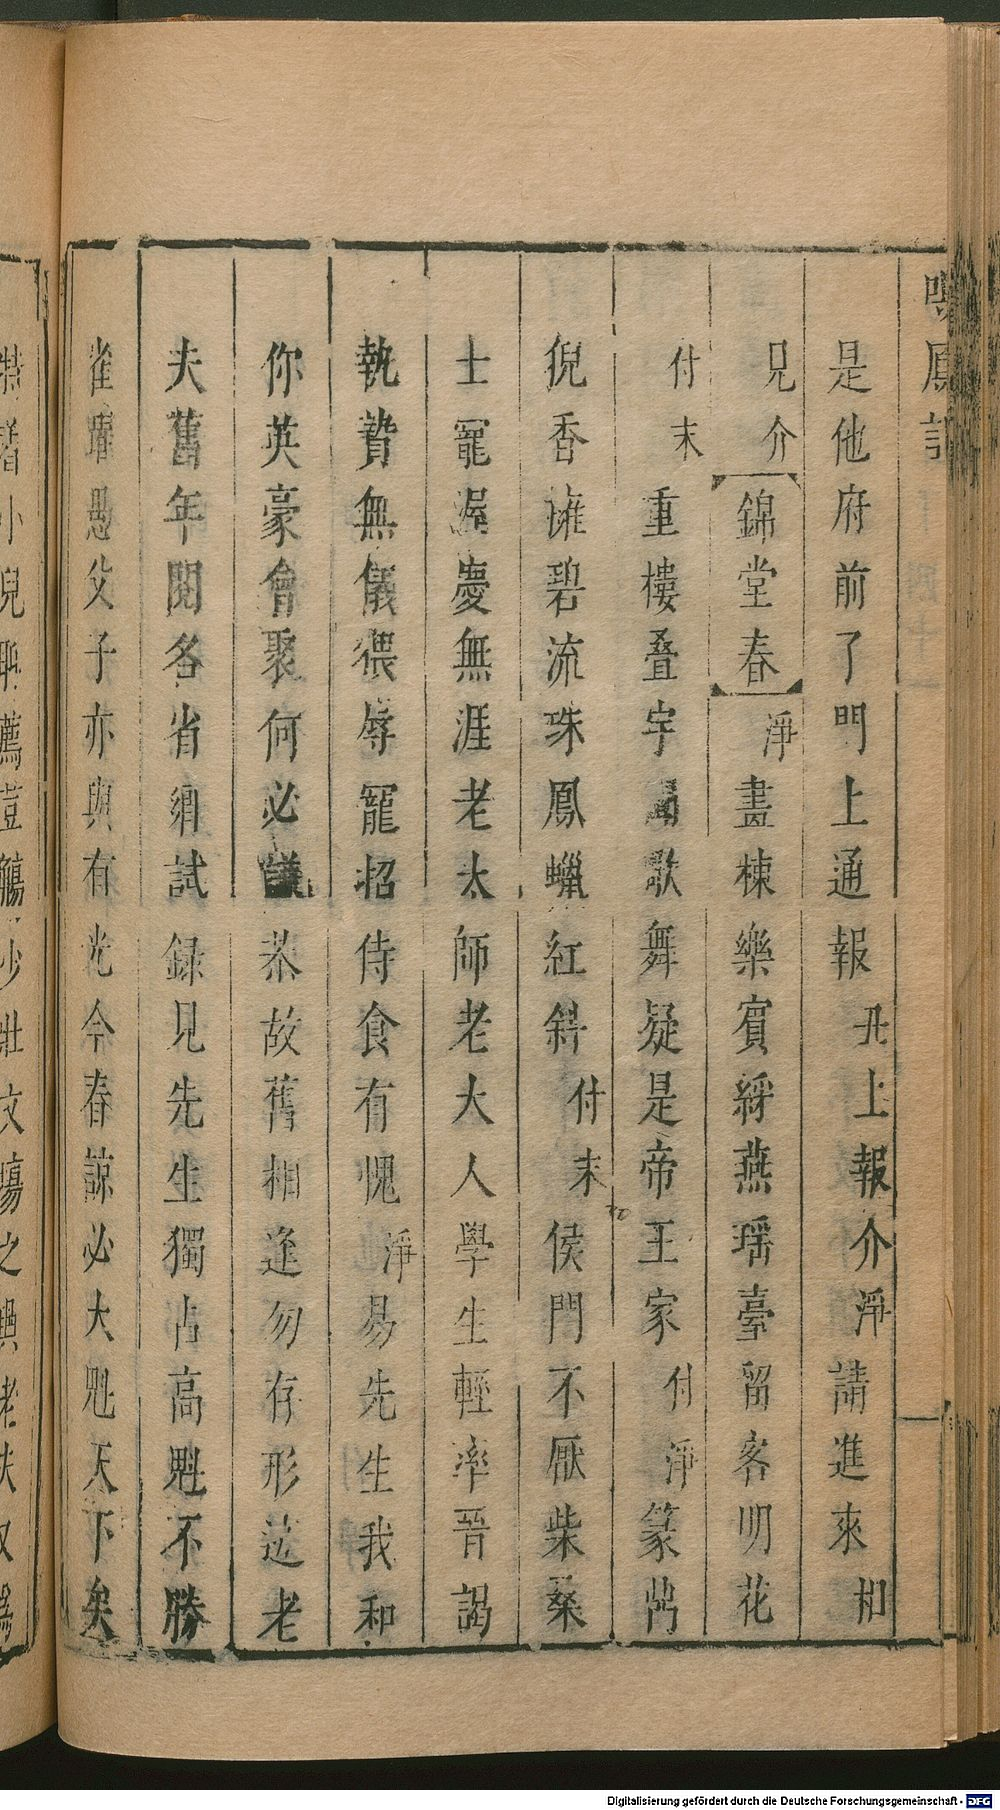 鳴鳳記
是他府前了門上通報丑上報介淨請進來相
見介【錦堂春】淨畫棟樂賓綵燕瑶臺留客明花
付末重樓叠宇歌舞疑是帝王家付淨篆鸭
猊香擁碧流珠鳳蠟紅斜付末侯門不厭柴桑
士寵渥慶無涯老太師老大人學生輕率晉謁
執贄無儀猥辱寵招侍食有愧淨易先生我和
你英豪會聚何必議恭故舊相逢勿存形迹老
夫舊年閱各省鄉試録見先生獨占高魁不勝
雀躍愚父子亦與有光今春諒必大魁天下矣
小兒耶薦荳觴少壯文塲之興老夫又爲
Digitalisierung gefördert durch die Deutsche Forschungsgemeinschaft - DFG